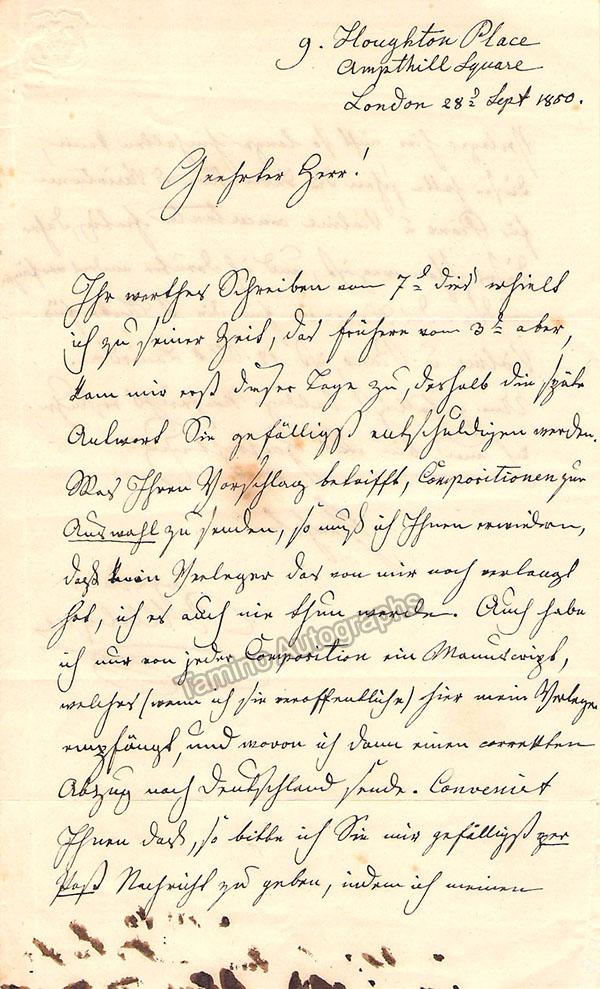 9. Houghton Place
Ampthill Square
London 28ᵗ Sept 1850.
Geehrter Herr!
Ihr werthes Schreiben vom 7ᵗ dies erhielt
ich zu seiner Zeit, das frühere vom 3ᵗ aber,
kam mir erst dieser Tage zu, deshalb die späte
Antwort Sie gefälligst entschuldigen werden.
Was Ihren Vorschlag betrifft, Compositionen zur
Auswahl zu senden, so muß ich Ihnen erwiedern,
daß kein Verleger das von mir noch verlangt
hat, ich es auch nie thun werde. Auch habe
ich nur von jeder Composition ein Manuscript,
welches (wenn ich sie veröffentliche) hier mein Verleger
empfängt, und wovon ich dann einen correkten
Abzug nach Deutschland sende. Convenirt
Ihnen das, so bitte ich Sie mir gefälligst per
Post Nachricht zu geben, indem ich meinen
Tamino Autographs